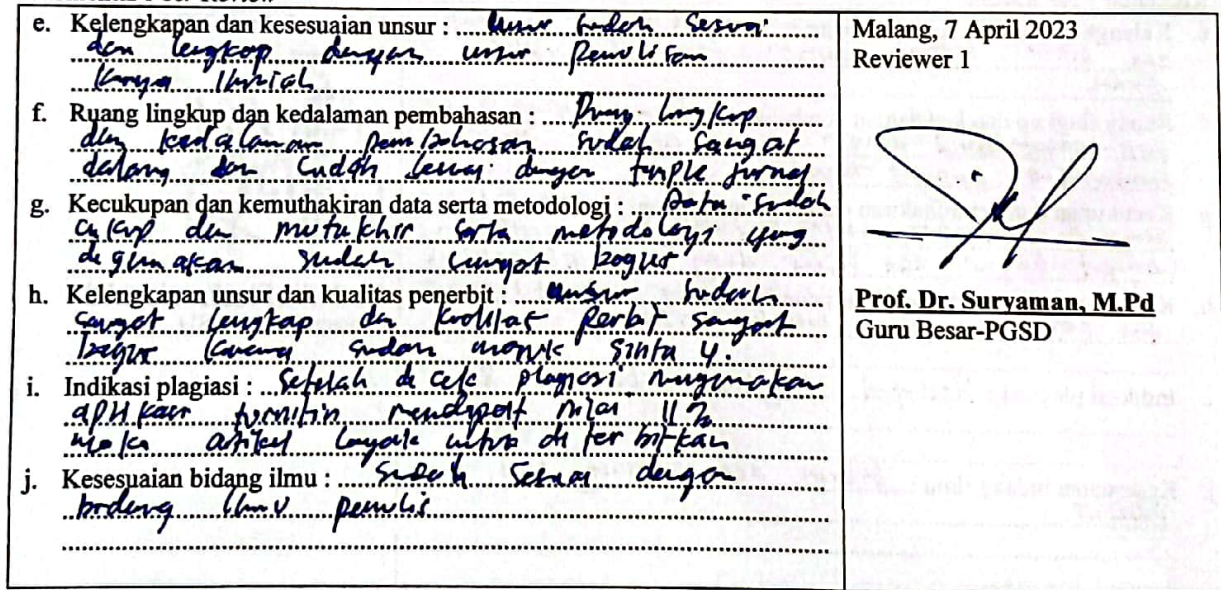 e. Kelengkapan dan kesesuaian unsur : Unsur sudah sesuai
dan lengkap dengan unsur penulisan
karya ilmiah
f. Ruang lingkup dan kedalaman pembahasan : Ruang lingkup
dan kedalaman pembahasan sudah sangat
dalam dan sudah sesuai dengan jurnal
g. Kecukupan dan kemuthakiran data serta metodologi : Data sudah
cukup dan mutakhir serta metodologi yang
digunakan sudah sangat bagus
h. Kelengkapan unsur dan kualitas penerbit : unsur sudah
sangat lengkap dan sangat
bagus karena sudah masuk sinta 4.
i. Indikasi plagiasi : Setelah di cek plagiasi
turnitin mendapat nilai
maka artikel layak untuk di terbitkan
j. Kesesuaian bidang ilmu : Sudah sesuai dengan
bidang ilmu penulis
Malang, 7 April 2023
Reviewer 1
Prof. Dr. Suryaman, M.Pd
Guru Besar-PGSD